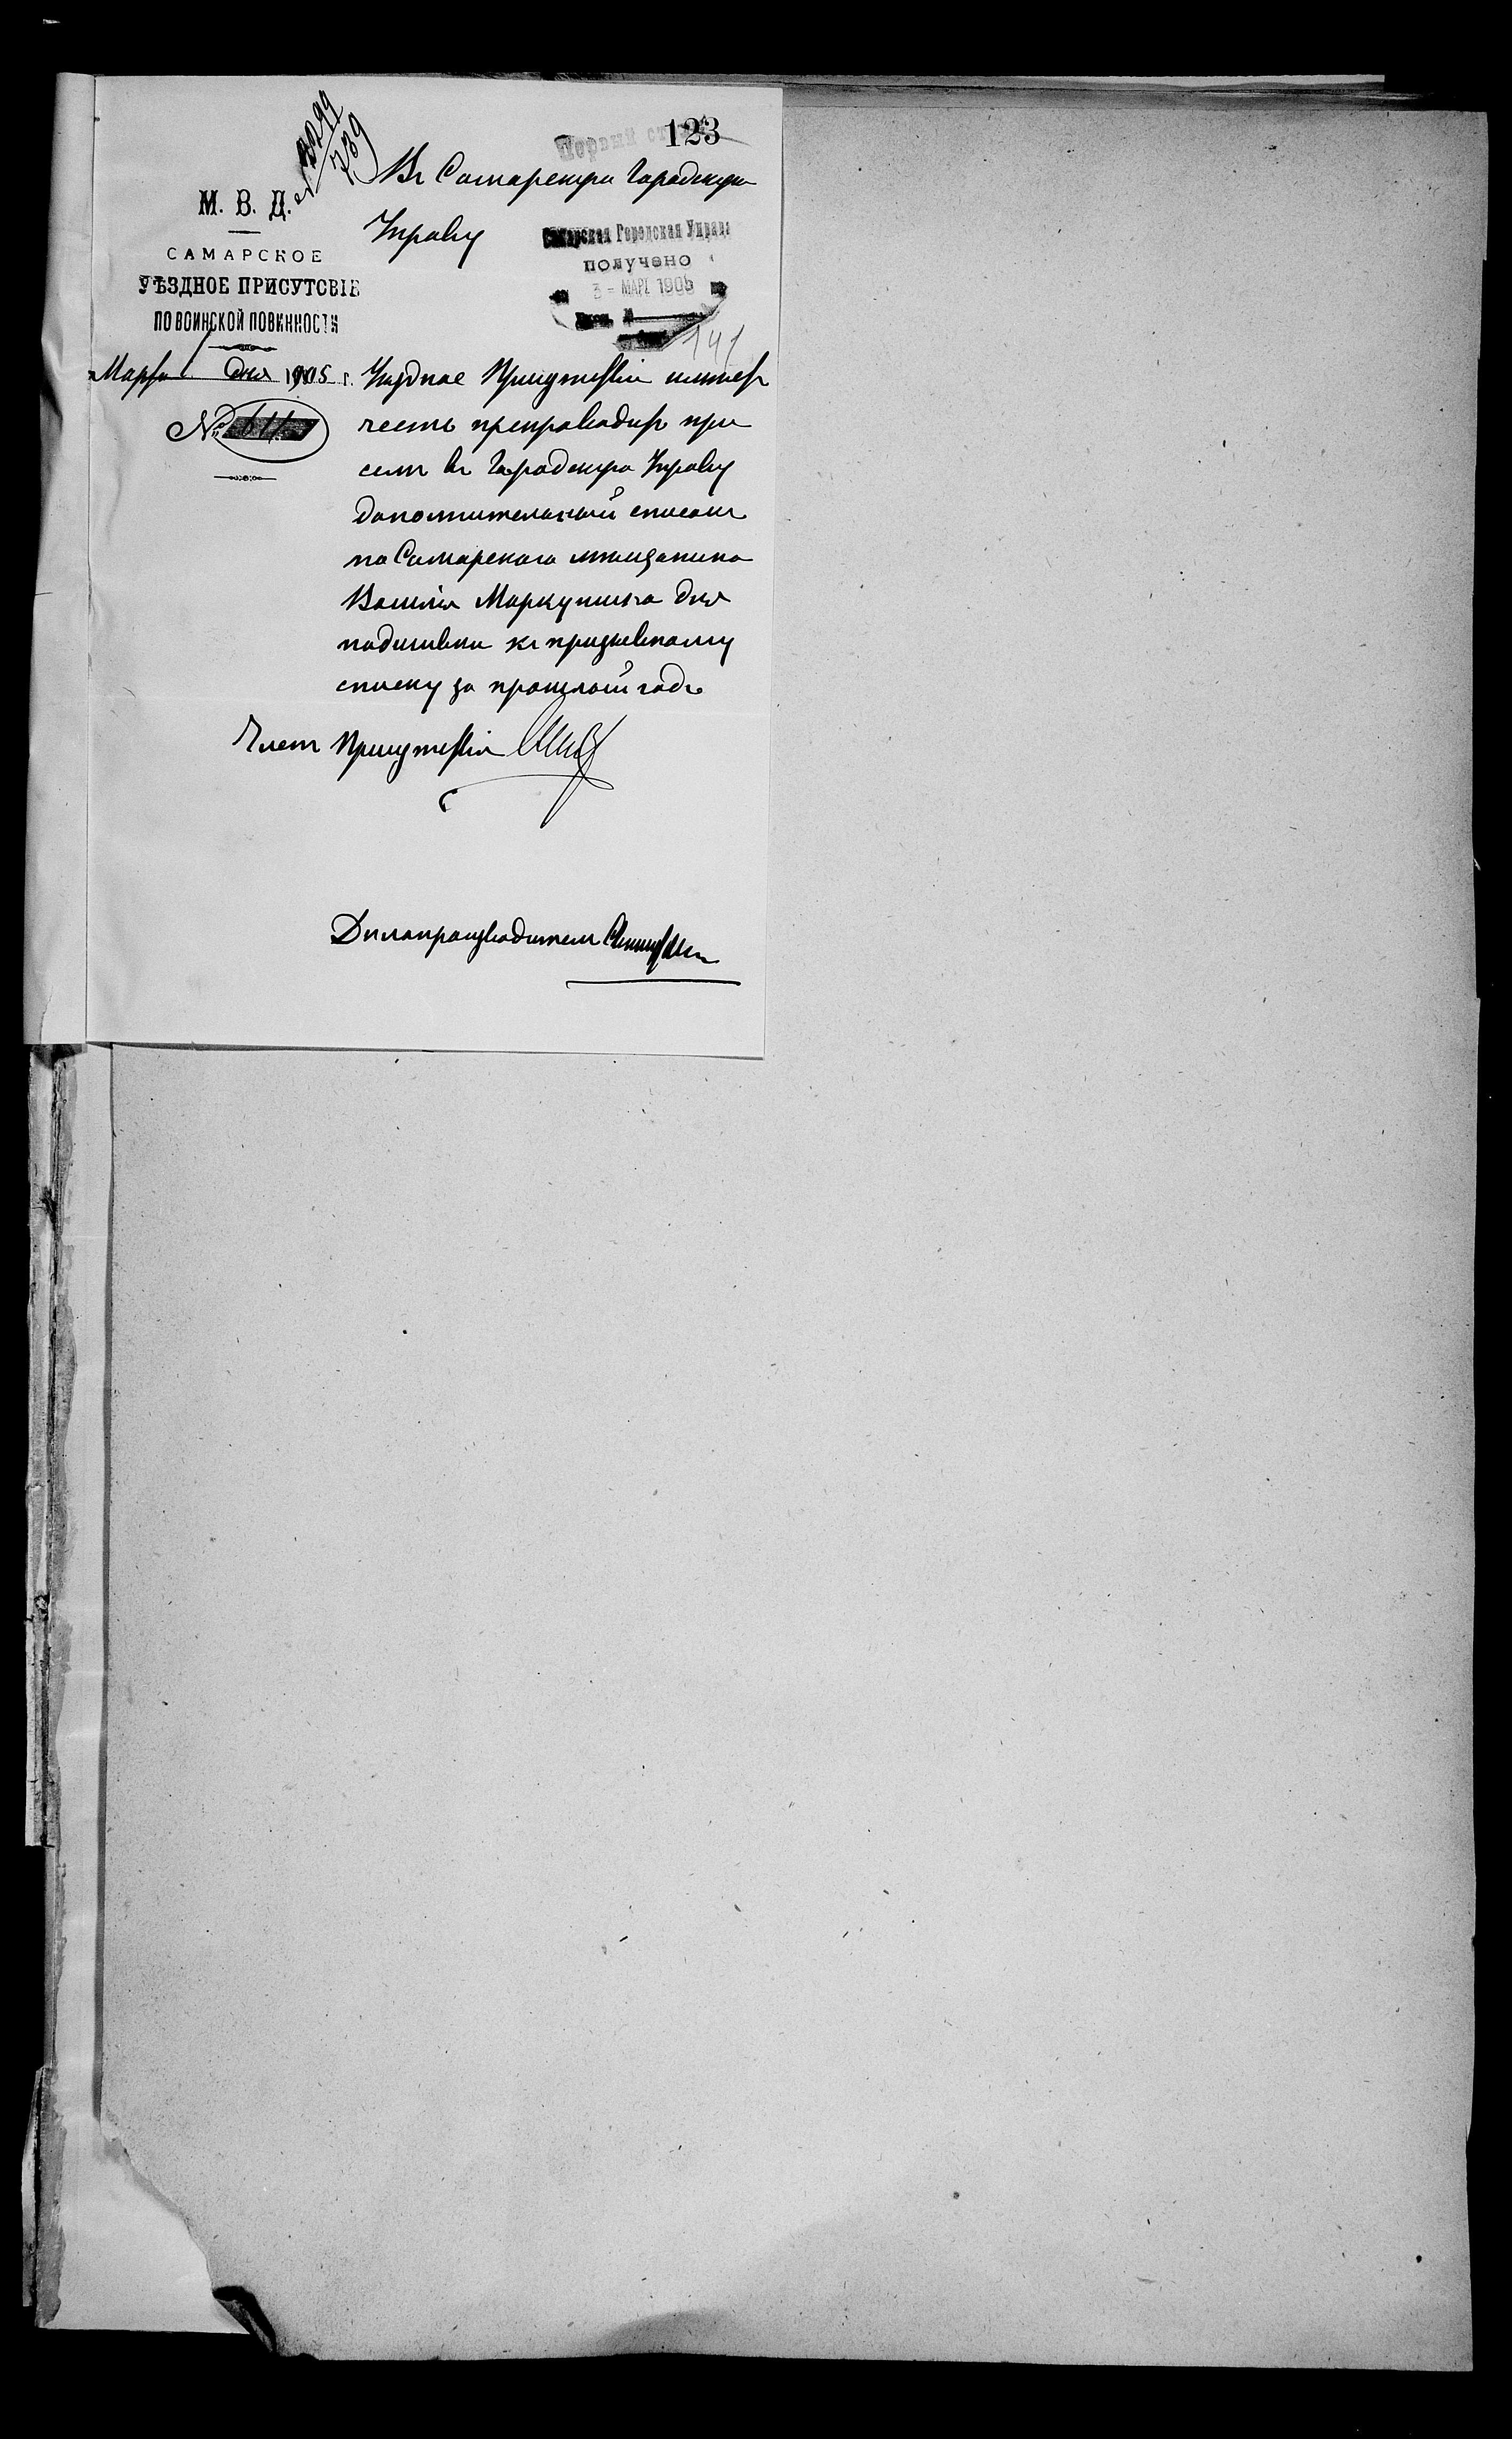 123
Первый столъ
№ 3299
739
М. В. Д.
САМАРСКОЕ
УѢЗДНОЕ ПРИСУТСВІЕ
ПО ВОИНСКОЙ ПОВИННОСТИ
Марта 1 дня 1905 г.
№ 611
Въ Самарскую Городскую
Управу
Самарская Городская Управа
получено
3 - МАР. 1905
141
Уѣздное Присутствіе имѣетъ
честь препроводить при
семъ въ Городскую Управу
дополнительный списокъ
на Самарскаго мѣщанина
Василія Маркушина для
подшивки къ призывному
списку за прошлый годъ
Членъ Присутствія
Дѣлопроизводитель